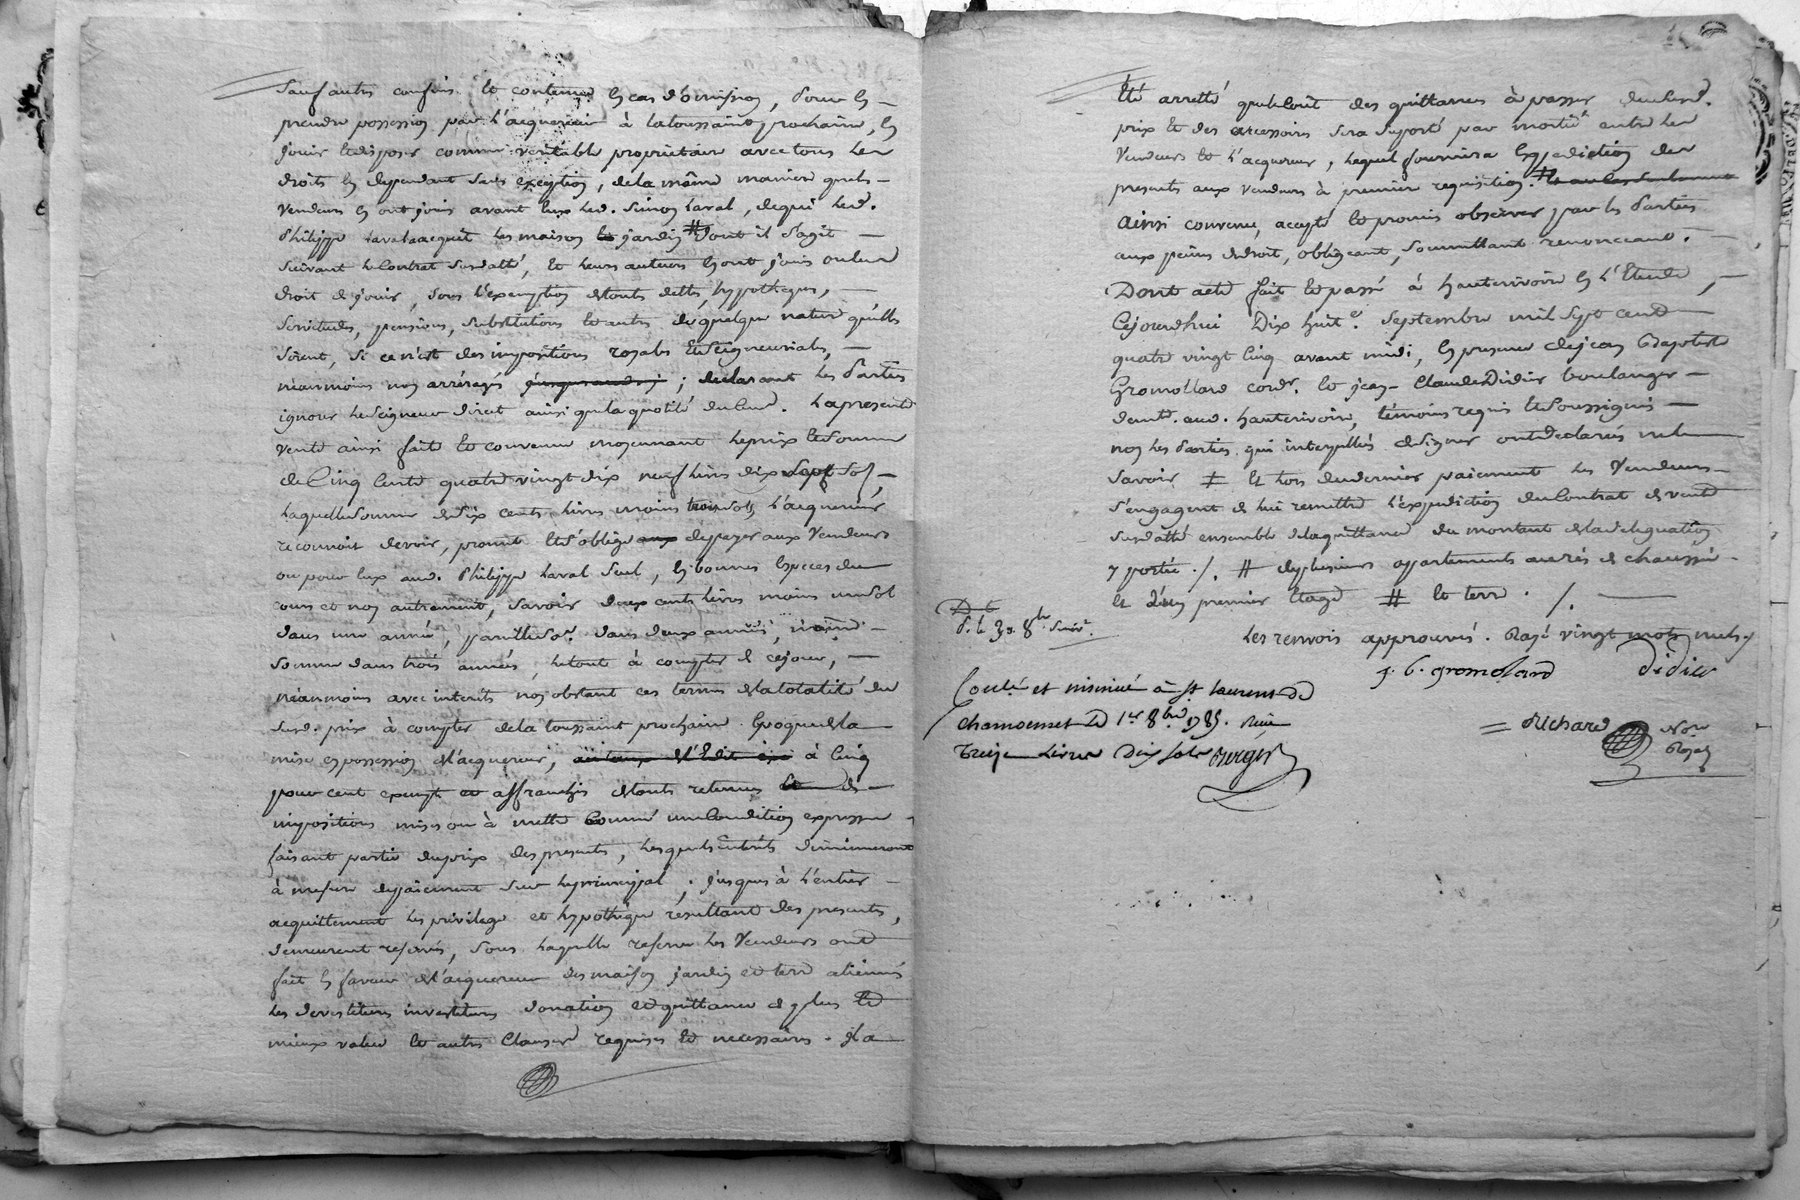 Sauf autres confins et contenue en cas d'omission, pour en
prendre possession par l'acquereur à la toussaint prochaine, en
jouir et disposer comme veritable proprietaire avec tous les
droits en dependant sans exeption, de la même maniere que les
vendeurs en ont jouis avant lux led. Simon Laval, de qui led.
Philippe Laval a acquit les maison et jardin # dont il s'agit
suivant le Contrat susdatté, et leurs auteurs en ont jouis ou eu
droit de jouir, sous l'exemption de touts dettes, hypotheques,
servitudes, pensions, substitutions et autres de quelque nature qu'elles
soient, si ce n'est des impositions royales et seigneuriales,
néanmoins non arréragés ; declarant les Parties
ignorer le Seigneur direct ainsi que la quotité du Cens. La presente
vente ainsi faite et convenue moyennant le prix et somme
de Cinq Cents quatre vingt dix neuf livres dix sept sols
laquelle somme de Six cents livres moins trois sols, l'acquereur
reconnoit devoir, promet et s'oblige aux de payer aux Vendeurs
ou pour eux aud. Philippe Laval seul, en bonnes Especes du
cours et non autrement, savoir deux cents livres moins un sol
dans une année, pareille so.e dans deux années, même
somme dans trois années, le tout à compter de ce jour,
néanmoins avec interets non obstant ces termes de la totalité du
susd. prix à compter de la toussaint prochaine Epoque de la
mise en possession de l'acquereur, au taux de l'Edit à Cinq
pour cent exempt et affranchis de touts retenues et d'
impositions mises ou à mettre comme une Condition expresse
faisant partie du prix des presentes, lesquels interêts diminueront
à mesure de paiement sur le principal ; jusques à l'entier
acquittement les privilege et hypothèque résultant des presentes,
demeurent reservés, sous laquelle reserve les Vendeurs ont
fait en faveur de l'acquereur des maison jardin et terre alienés
les devestitures investitures donation et quittance de plus et
mieux value et autres Clauses requises et necessaires. Il a
été arretté que le Coût des quittances à passer du susd.
prix et des accessoires sera suporté par moitié entre les
vendeurs et l'acquereur, lequel fournira Expedition des
presentes aux vendeurs à premier requisition.
ainsi convenu, accepté et promis observer par les Parties
aux peines de droit, obligeant, soumettant renonceant.
Dont acte fait et passé à hauterivoire en l'Etude,
Cejourdhui Dix huit.e Septembre mil Sept cent
quatre vingt Cinq avant midi, en presence de jean Baptiste
Gromollard cord.r et jean Claude Didier boulanger
demt. aud. hauterivoire, témoins requis et soussignés
non les Parties qui interpellés de signer ont declarés ne le
savoir # et lors du dernier paiement les Vendeurs
s'engagent de lui remettre l'expedition du Contrat de vente
susdatté ensemble de la quittance du montant de la deleguation
y portée ./. # de plusieurs appartements au rés de chaussée
et d'un premier Etage # et terre ./.
les renvois approuvés. Rayé vingt mots nuls ./
J. B. gromolard Didier
Richard No.re Royal
D. le 30 8bre
Conlé et insinué à St Laurent de
chamousset le 1er 8bre 1785. Reçu
treize Livres Dix sols Berger